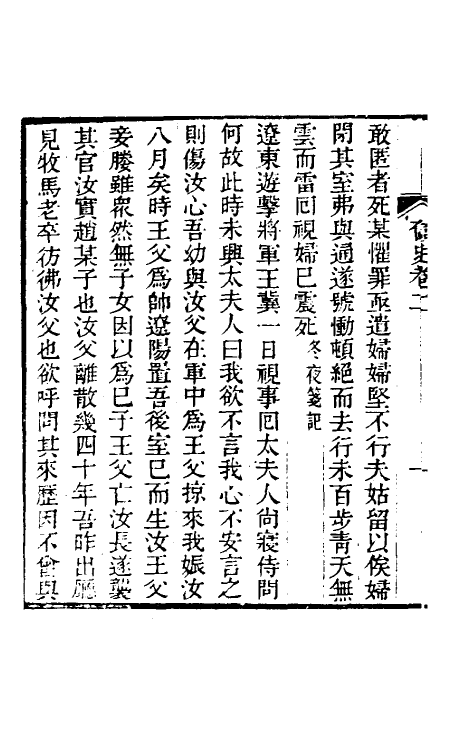 敢匿者死某懼罪亟遣婦婦堅不行夫姑留以俟婦
閉其室弗與通遂號慟頓絕而去行未百步靑天無
雲而雷回視婦已震死冬夜箋記
遼東遊擊將軍王冀一日視事回太夫人尙寢侍問
何故此時未興太夫人曰我欲不言我心不安言之
則傷汝心吾幼與汝父在軍中爲王父掠來我娠汝
八月矣時王父爲帥遼陽置吾後室已而生汝王父
妾媵雖衆然無子女因以爲已子王父亡汝長遂襲
其官汝實趙某子也汝父離散幾四十年吾昨出廳
見牧馬老卒彷彿汝父也欲呼問其來歷因不曾與